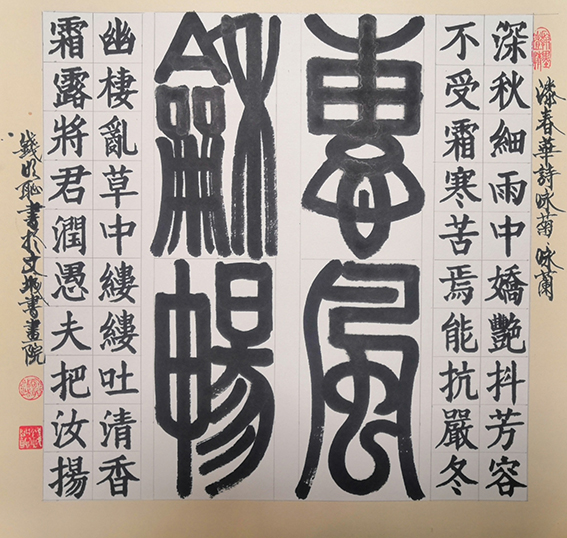 漆春華詩咏菊咏蘭
深秋細雨中嬌艷抖芳容
不受霜寒苦焉能抗嚴冬
惠風
龢暢
幽棲亂草中縷縷吐清香
霜露將君潤愚夫把汝揚
錢恥書於文城書畫院